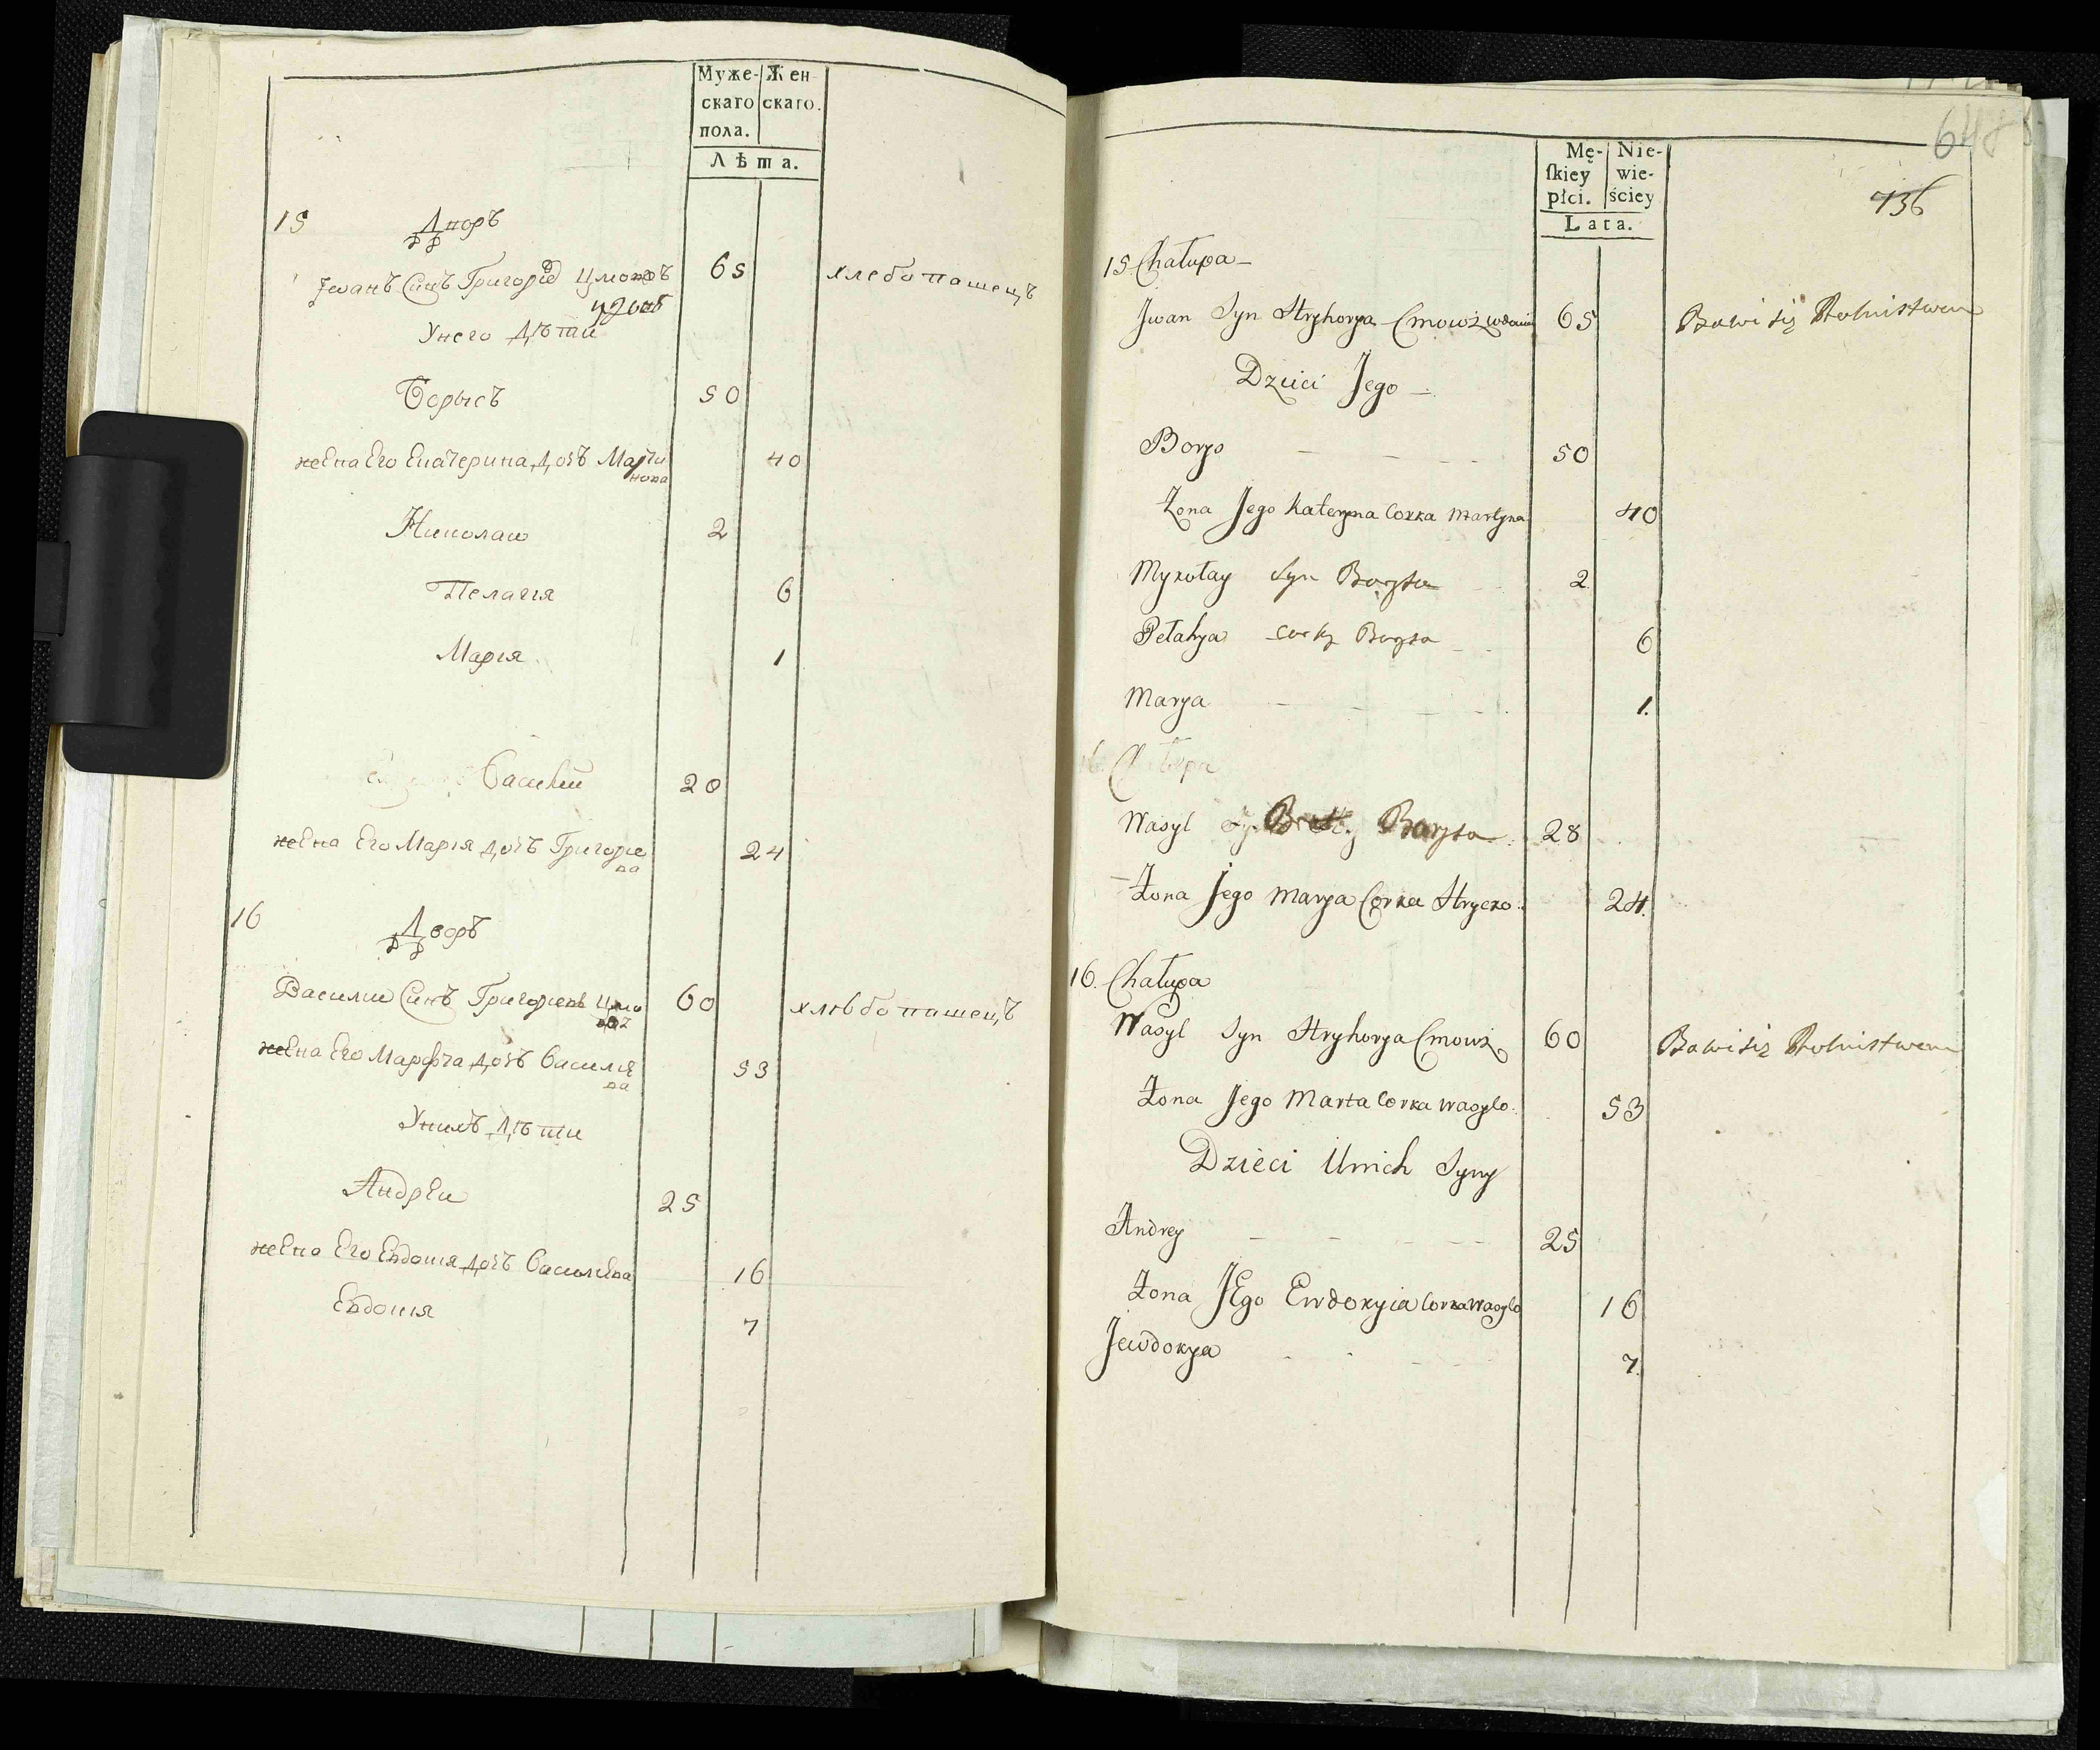 Муже- Жен-
скаго скаго.
пола.
Лѣта.
15 Дворъ
Іванъ Синъ Григоріе Цмовъ 65 хлебопашецъ
удовъ
Унего Дѣти
Борысъ 50
жена Его Екатерина дочъ Марти 40
нова
Николаи 2
Пелагія 6
Марія 1
Василій 20
жена Его Марія дочъ Григорие 24
ва
16 Дворъ
Василии Синъ Григориевъ Цмо 60 хлѣбопашецъ
жена Его Марфта дочъ Василіе 53
ва
Унихъ Дѣти
Андреи 25
жена Его Евдокия дочъ Василиева 16
Евдокия 7
648
Mę- Nie-
ſkiey wie-
płci. ściey
Lata.
736
15 Chałupa
Jwan Syn Hryhorya Cmowż wdowiec 65 Bawi się Rolnistwem
Dzieci Jego
Borys 50
Żona Jego Kateryna Corka Martyna 40
Mykołay Syn Borysa 2
Pełahya corky Borysa 6
Marya 1.
16. Chałupa
Wasyl Borysa 28
Żona Jego Marya Corka Hrycko. 24.
16. Chałupa
Wasyl Syn Hryhorya Cmowż. 60 Bawi się Rolnistwem
Żona Jego Marta Corka Wasylo. 53
Dzieci Unich Syny
Andrey 25
Żona JEgo Ewdokyia Corka Wasylo 16
Jewdokya 7.